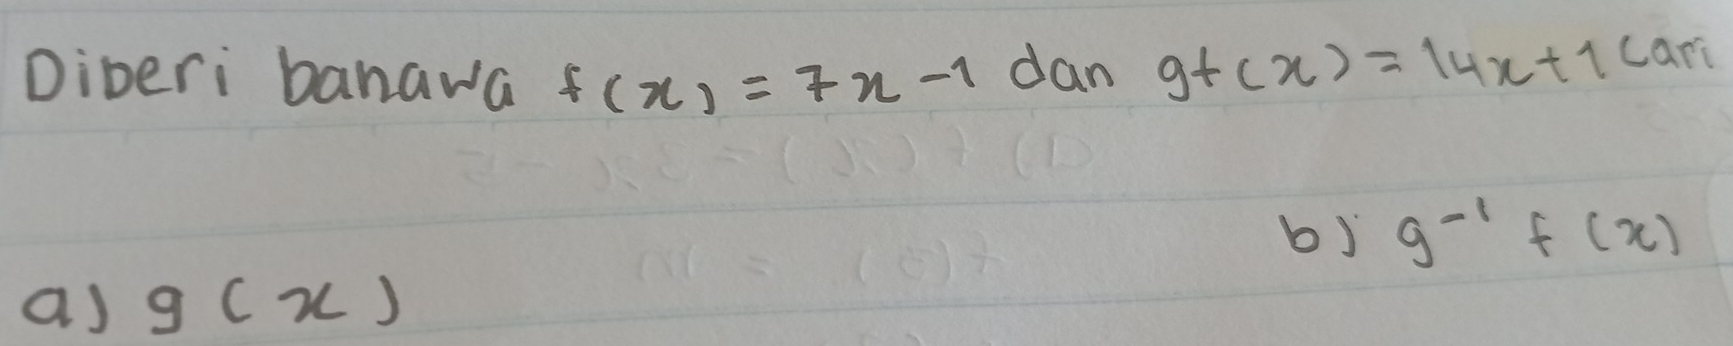 Diberi banawa f(x) = 7x - 1 dan gf(x) = 14x + 1 cari
b) g⁻¹ f(x)
a) g(x)